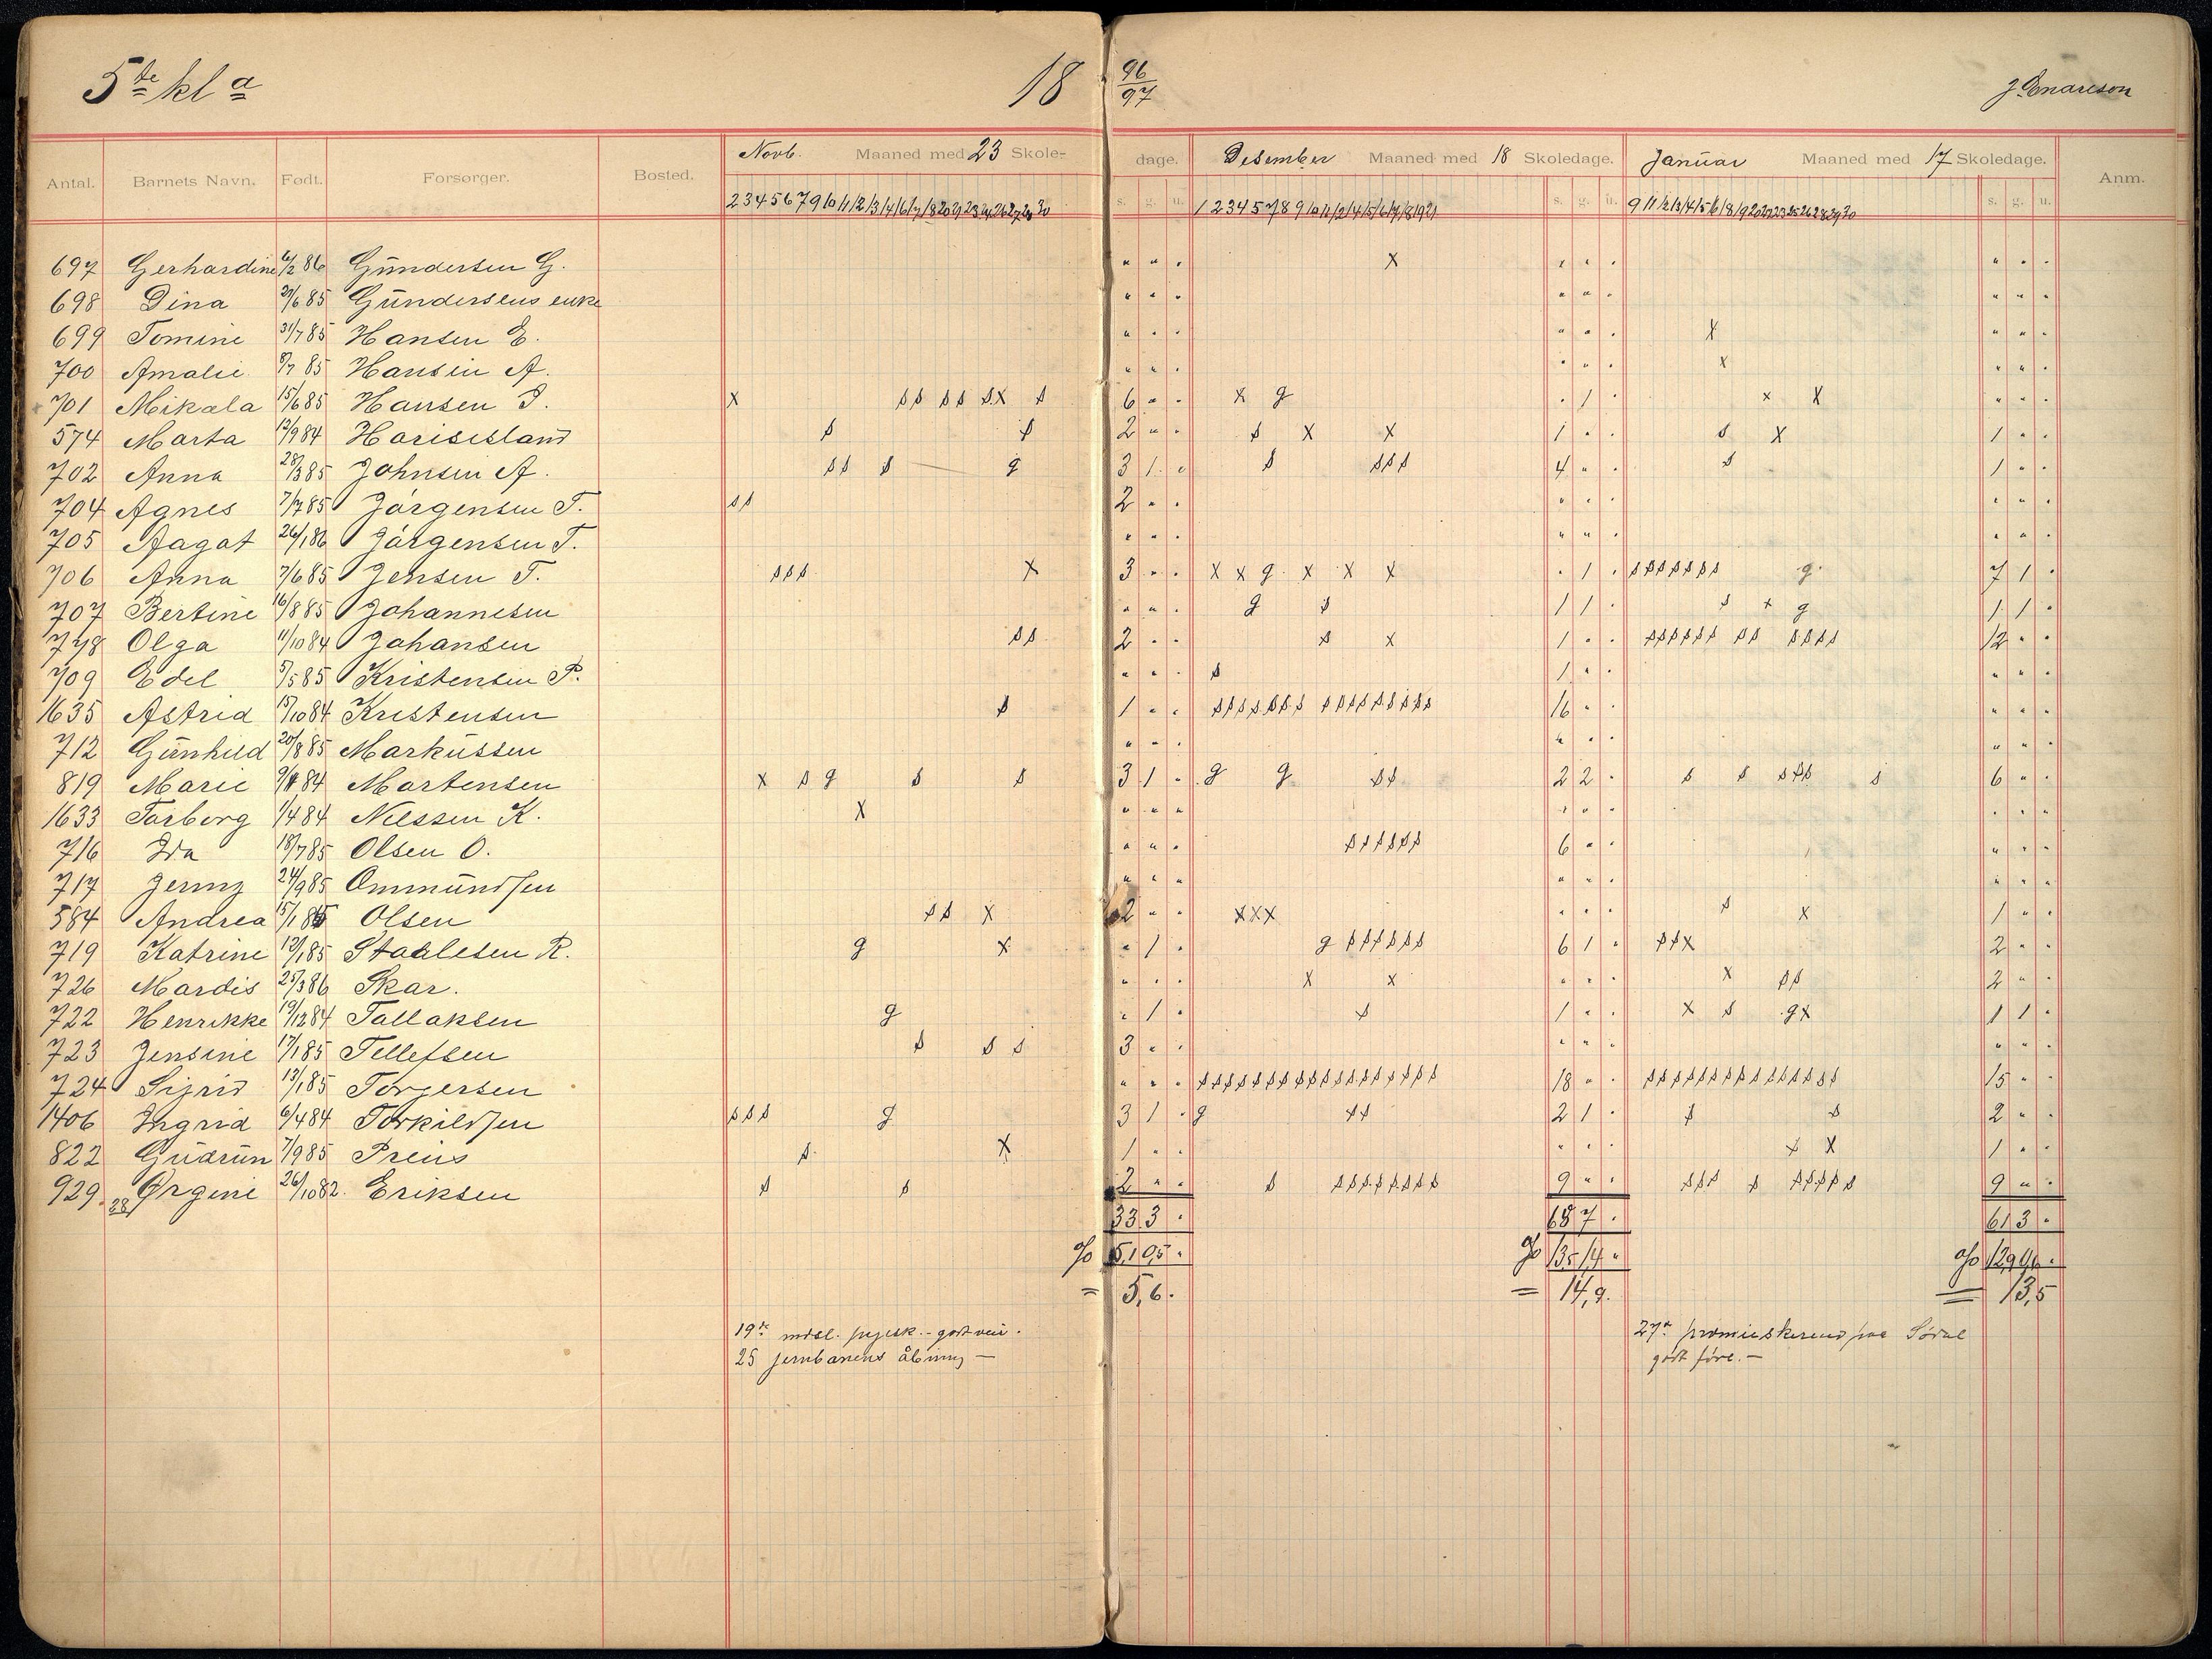 5te kl a 18 96/97
Novb. Maaned med 23 Skole- dage. Desember Maaned med 18 Skoledage. Januar Maaned med 17 Skoledage.
Antal. Barnets Navn. Født. Forsørger. Bosted. s. g. u. s. g. u. s. g. u. Anm.
697 Gerhardine 6/2 86 Gundersen G. " " " x " " " " " "
698 Dina 27/6 85 Gundersens enke " " " " " " " " "
699 Tomine 31/7 85 Hansen E. " " " " " " x " " "
700 Amalie 8/7 85 Hansen A. " " " " " " x " " "
701 Mikala 15/6 85 Hansen x s s s s s x s 6 " " x g " 1 " x x " " "
574 Marta 12/9 84 s s 2 " " s x x 1 " " s x 1 " "
702 Anna 28/3 85 Johnsen A. s s s g 3 1 " s s s s 4 " " s 1 " "
704 Agnes 7/7 85 Jørgensen T. s s 2 " " " " " " " "
705 Aagot 26/1 86 Jørgensen T. " " " " " " " " "
706 Anna 7/6 85 Jensen T. s s s x 3 " " x x g x x x " 1 " s s s s s s s g 7 1 "
707 Bertine 16/8 85 Johannesen " " " g s 1 1 " s x g 1 1 "
778 Olga 11/10 84 Johansen s s 2 " " s x 1 " " s s s s s s s s s s s s 12 " "
709 Edel 5/5 85 Kristensen P. " " " s 1 " " " " "
1635 Astrid 15/10 84 Kristensen s 1 " " s s s s s s s s s s s s s s s s 16 " " " " "
712 Gunhild 20/8 85 Markussen " " " " " " " " "
819 Marie 84 Martensen x s g s s 3 1 " g g s s 2 2 " s s s s s s 6 " "
1633 Torborg 1/4 84 Nilssen K. x " " " " " " " " "
716 Ida 18/7 85 Olsen O. " " " s s s s s s 6 " " " " "
717 Jenny 24/9 85 Ommundsen " " " " " " " " "
584 Andrea 15/1 85 Olsen s s x 2 " " x x x " " " s x 1 " "
719 Katrine 12/1 85 Staalesen R. g x " 1 " g s s s s s s 6 1 " s s x 2 " "
726 Mardis 25/3 86 Skar. " " " x x " " " x s s 2 " "
722 Henrikke 19/12 84 Tallaksen g " 1 " s 1 " " x s g x 1 1 "
723 Jensine 17/1 85 Tellefsen s s s 3 " " " " " " " "
724 Sigrid 13/1 85 Torgersen " " " s s s s s s s s s s s s s s s s s s 18 " " s s s s s s s s s s s s s s s 15 " "
1406 Ingrid 6/4 84 Torkildsen s s s g 3 1 " g s s 2 1 " s s 2 " "
822 Gudrun 7/9 85 Preus s x 1 " " " " " s x 1 " "
929. Ørgine 26/10 82. Eriksen s s 2 " " s s s s s s s s s 9 " " s s s s s s s s s 9 " "
28
33 3 " 68 7 " 61 3 "
% 5,1 0,5 " % 13,5 1,4 " %
= 5,6. = 14,9. = 13,5
19de 27de
25 jernbanens åbning — godt føre. —